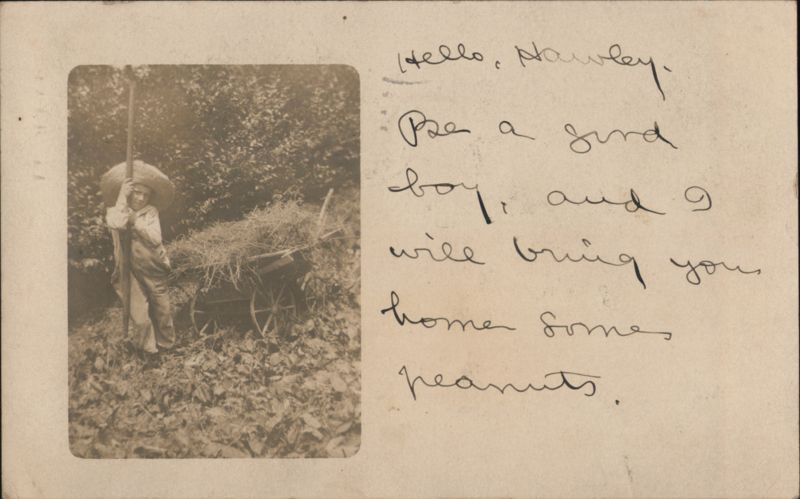 Hello, Hawley.
Be a good
boy, and I
will bring you
home some
peanuts.